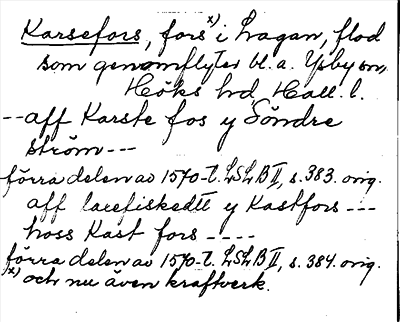 Karsefors, fors x) i Lagan, flod
som genomflyter bl.a. Ysby sn,
Höks hd Hall. l.
-- aff Karste fos y Söndre
ström ---
förra delen av 1570-t. LSLB II, s. 383. orig.
aff laxefiskedtt y Kastfors ---
hoss Kast fors ----
förra delen av 1570-t. LSLB II, s. 384. orig.
x) och nu även kraftverk.